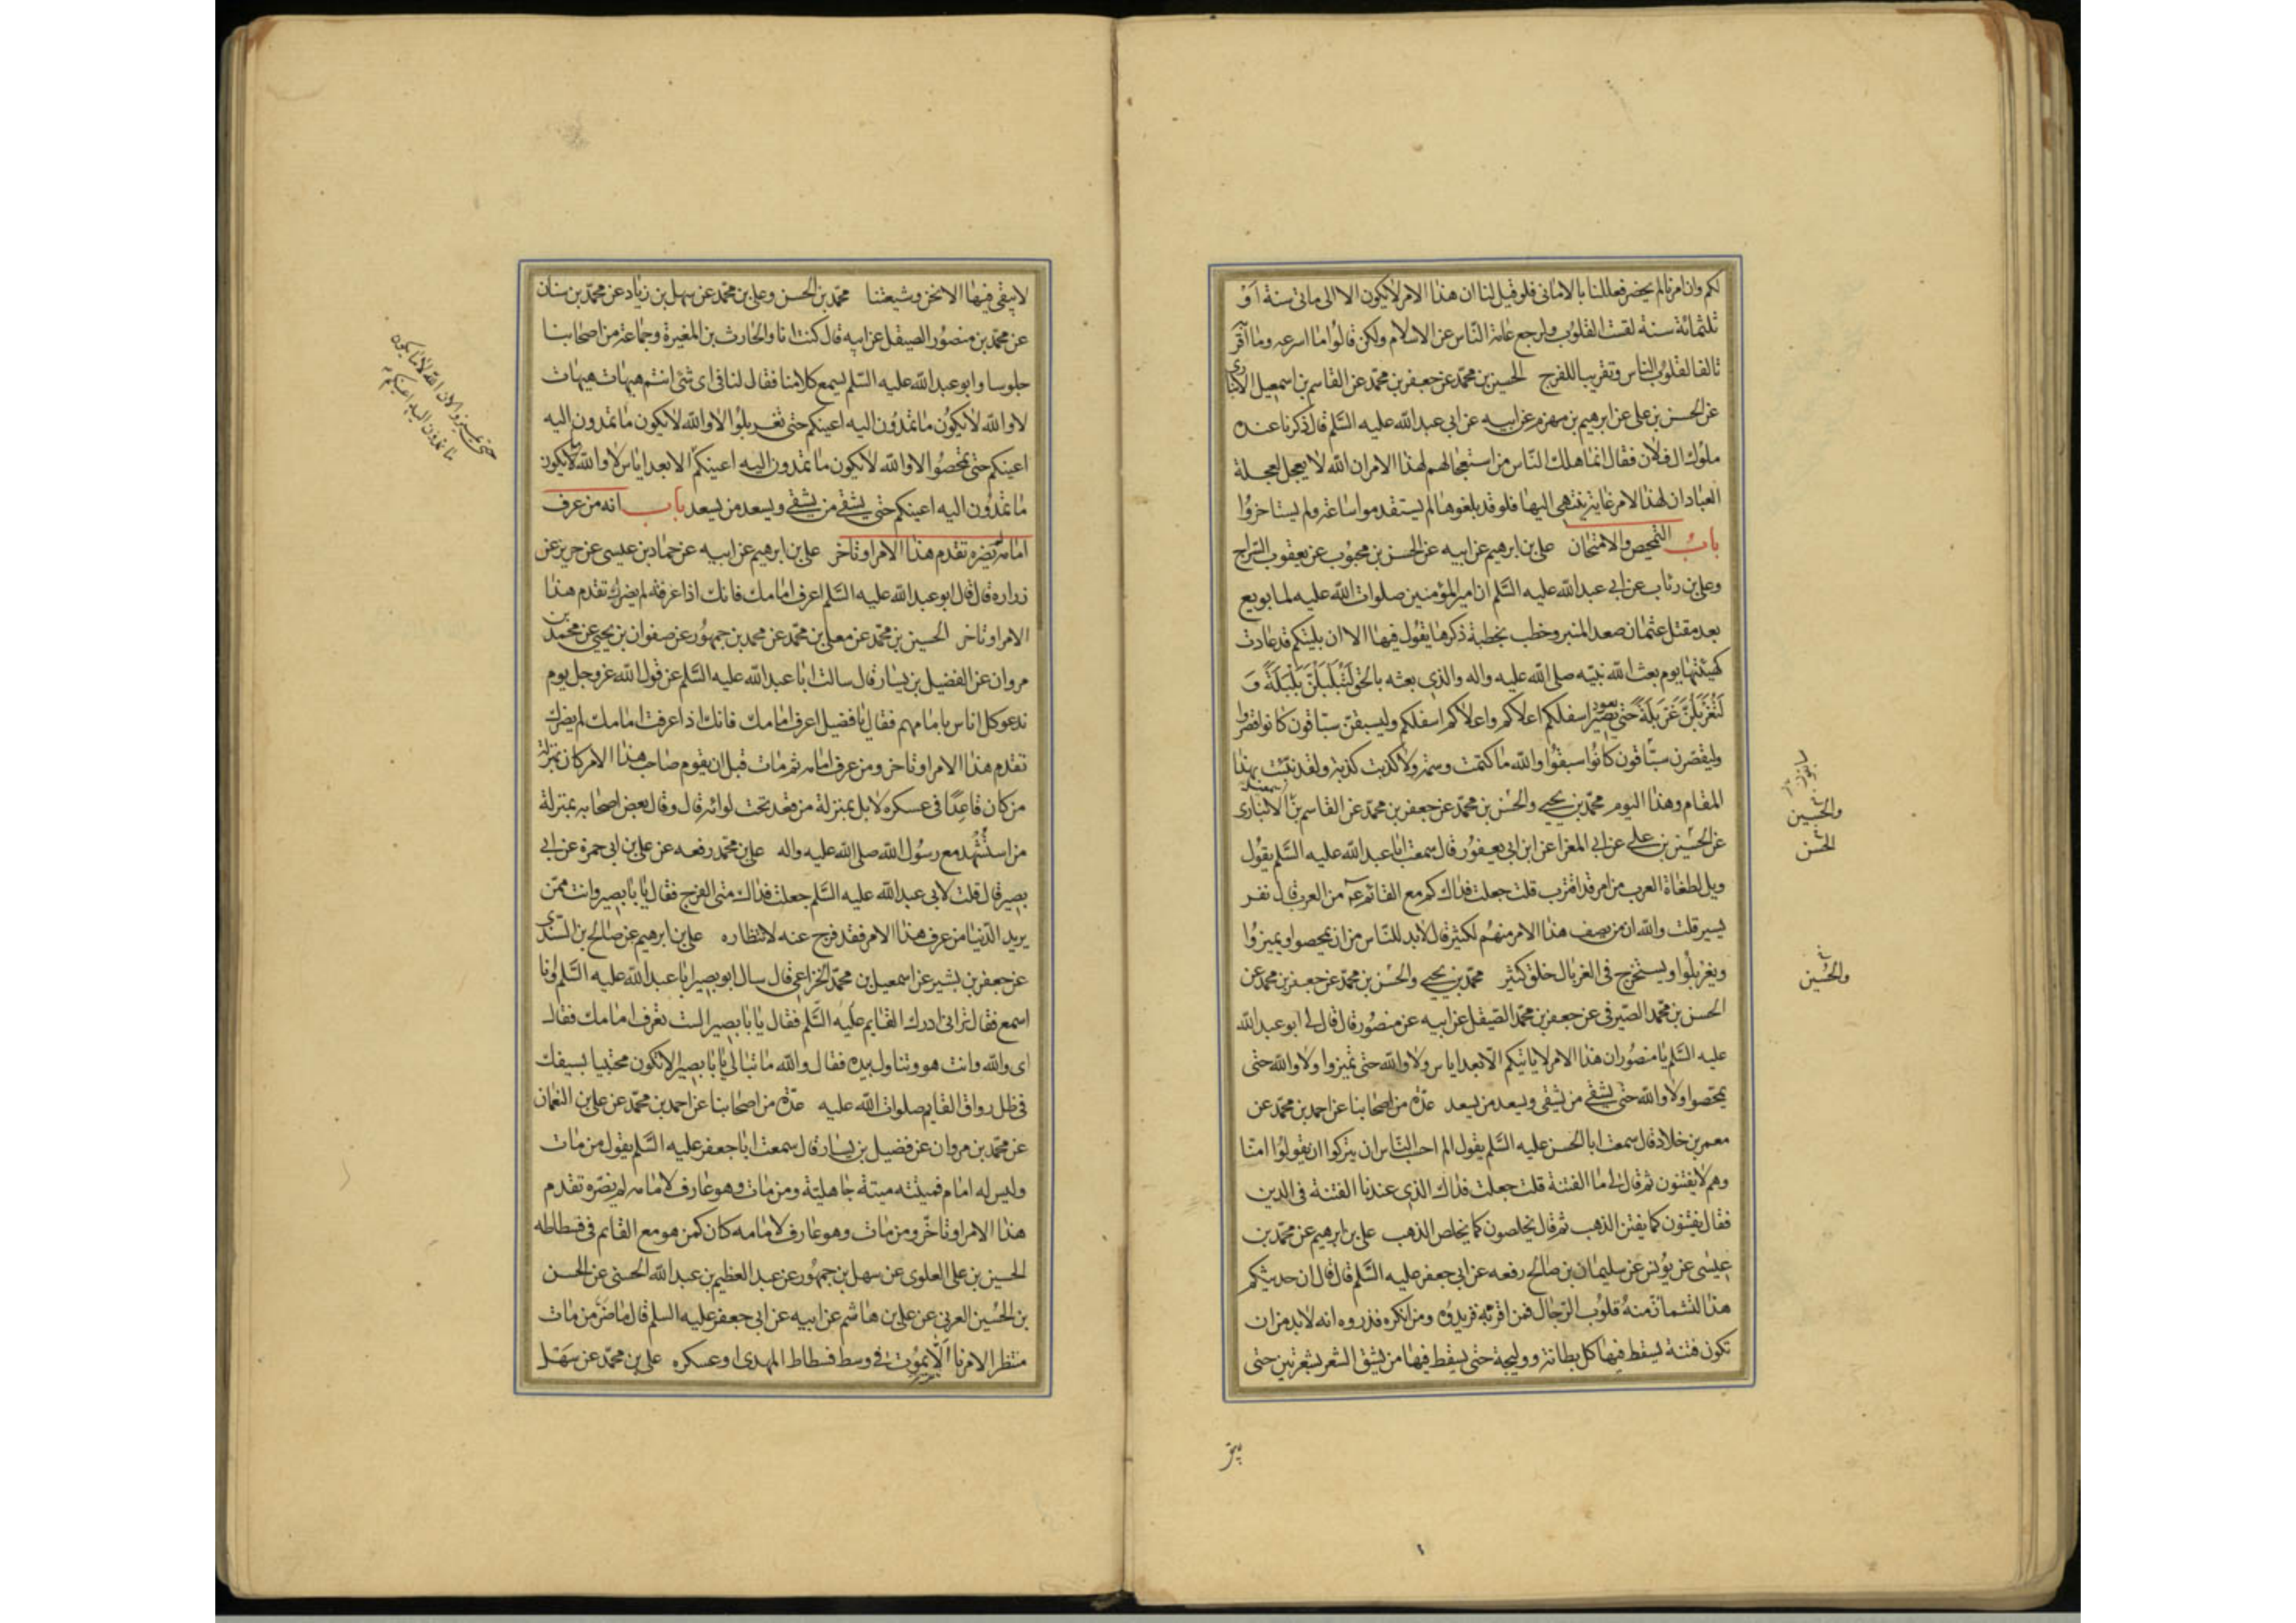 لكم وان امرنا لم يحضر فعللنا بالاماني فلو قيل لنا ان هذا الامر لا يكون الا الى مائتي سنة او
ثلثمائة سنة لقست القلوب ولرجع عامة الناس عن الاسلام ولكن قالوا ما اسرعه وما اقربه
تالفا لقلوب الناس وتقريبا للفرج الحسين بن محمد عن جعفر بن محمد عن القاسم بن اسمعيل الانباري
عن الحسن بن علي عن ابرهيم بن مهزم عن ابيه عن ابي عبد الله عليه السلم قال ذكرنا عنده
ملوك ال فلان فقال انما هلك الناس من استعجالهم لهذا الامر ان الله لا يعجل لعجلة
العباد ان لهذا الامر غاية ينتهي اليها فلو قد بلغوها لم يستقدموا ساعة ولم يستاخروا
باب التمحيص والامتحان علي بن ابرهيم عن ابيه عن الحسن بن محبوب عن يعقوب السراج
وعلي بن رئاب عن ابي عبد الله عليه السلم ان امير المؤمنين صلوات الله عليه لما بويع
بعد مقتل عثمان صعد المنبر وخطب بخطبة ذكرها يقول فيها الا ان بليتكم قد عادت
كهيئتها يوم بعث الله نبيه صلى الله عليه واله والذي بعثه بالحق لَتُبَلْبَلُنَّ بَلْبَلَةً وَ
لَتُغَرْبَلُنَّ غَرْبَلَةً حتى يعود اسفلكم اعلاكم واعلاكم اسفلكم وليسبقن سباقون كانوا قصروا
وليقصرن سباقون كانوا سبقوا والله ما كتمت وسمة ولا كذبت كذبة ولقد نبئت بهذا
المقام وهذا اليوم محمد بن يحيى والحسن بن محمد عن جعفر بن محمد عن القاسم بن اسمعيل الانباري
عن الحسين بن علي عن ابي المغرا عن ابن ابي يعفور قال سمعت ابا عبد الله عليه السلم يقول
ويل لطغاة العرب من امر قد اقترب قلت جعلت فداك كم مع القائم من العرب قال نفر
يسير قلت والله ان من يصف هذا الامر منهم لكثير قال لابد للناس من ان يمحصوا ويميزوا
ويغربلوا ويستخرج في الغربال خلق كثير محمد بن يحيى والحسن بن محمد عن جعفر بن محمد عن
الحسن بن محمد الصيرفي عن جعفر بن محمد الصيقل عن ابيه عن منصور قال قال لي ابو عبد الله
عليه السلم يا منصور ان هذا الامر لا ياتيكم الا بعد اياس ولا والله حتى تميزوا ولا والله حتى
يمحصوا ولا والله حتى يشقى من يشقى ويسعد من يسعد عدة من اصحابنا عن احمد بن محمد عن
معمر بن خلاد قال سمعت ابا الحسن عليه السلم يقول الم احسب الناس ان يتركوا ان يقولوا امنا
وهم لا يفتنون ثم قال لي ما الفتنة قلت جعلت فداك الذي عندنا الفتنة في الدين
فقال يفتنون كما يفتن الذهب ثم قال يخلصون كما يخلص الذهب علي بن ابرهيم عن محمد بن
عيسى عن يونس عن سليمان بن صالح رفعه عن ابي جعفر عليه السلم قال قال ان حديثكم
هذا لتشمئز منه قلوب الرجال فمن اقر به فزيدوه ومن انكره فذروه انه لابد من ان
تكون فتنة يسقط فيها كل بطانة ووليجة حتى يسقط فيها من يشق الشعر بشعرتين حتى
والحسين
الحسن
والحسين
لا يبقى فيها الا نحن وشيعتنا محمد بن الحسن وعلي بن محمد عن سهل بن زياد عن محمد بن سنان
عن محمد بن منصور الصيقل عن ابيه قال كنت انا والحارث بن المغيرة وجماعة من اصحابنا
جلوسا وابو عبد الله عليه السلم يسمع كلامنا فقال لنا في اي شئ انتم هيهات هيهات
لا والله لا يكون ما تمدون اليه اعينكم حتى تغربلوا لا والله لا يكون ما تمدون اليه
اعينكم حتى تمحصوا لا والله لا يكون ما تمدون اليه اعينكم الا بعد اياس لا والله لا يكون
ما تمدون اليه اعينكم حتى يشقى من يشقى ويسعد من يسعد باب انه من عرف
امامه لم يضره تقدم هذا الامر او تاخر علي بن ابرهيم عن ابيه عن حماد بن عيسى عن حريز عن
زراره قال قال ابو عبد الله عليه السلم اعرف امامك فانك اذا عرفته لم يضرك تقدم هذا
الامر او تاخر الحسين بن محمد عن معلى بن محمد عن محمد بن جمهور عن صفوان بن يحيى عن محمد بن
مروان عن الفضيل بن يسار قال سالت ابا عبد الله عليه السلم عن قول الله عز وجل يوم
ندعو كل اناس بامامهم فقال يا فضيل اعرف امامك فانك اذا عرفت امامك لم يضرك
تقدم هذا الامر او تاخر ومن عرف امامه ثم مات قبل ان يقوم صاحب هذا الامر كان بمنزلة
من كان قاعدًا في عسكره لا بل بمنزلة من قعد تحت لوائه قال وقال بعض اصحابه بمنزلة
من استشهد مع رسول الله صلى الله عليه واله علي بن محمد رفعه عن علي بن ابي حمزة عن ابي
بصير قال قلت لابي عبد الله عليه السلم جعلت فداك متى الفرج فقال يا با بصير وانت ممن
يريد الدنيا من عرف هذا الامر فقد فرج عنه لانتظاره علي بن ابرهيم عن صالح بن السندي
عن جعفر بن بشير عن اسمعيل بن محمد الخزاعي قال سال ابو بصير ابا عبد الله عليه السلم وانا
اسمع فقال تراني ادرك القايم عليه السلم فقال يا با بصير الست تعرف امامك فقال
اي والله وانت هو وتناول بيده فقال والله ما تبالي يا با بصير الا تكون محتبيا بسيفك
في ظل رواق القايم صلوات الله عليه عدة من اصحابنا عن احمد بن محمد عن علي بن النعمان
عن محمد بن مروان عن فضيل بن يسار قال سمعت ابا جعفر عليه السلم يقول من مات
وليس له امام فميتته ميتة جاهلية ومن مات وهو عارف لامامه لم يضره تقدم
هذا الامر او تاخر ومن مات وهو عارف لامامه كان كمن هو مع القائم في فسطاطه
الحسين بن علي العلوي عن سهل بن جمهور عن عبد العظيم بن عبد الله الحسني عن الحسن
بن الحسين العرني عن علي بن هاشم عن ابيه عن ابي جعفر عليه السلم قال ما ضر من مات
منتظرا لامرنا الا يموت في وسط فسطاط المهدي او عسكره علي بن محمد عن سهل
حتى تميزوا لا والله لا يكون
ما تمدون اليه اعينكم